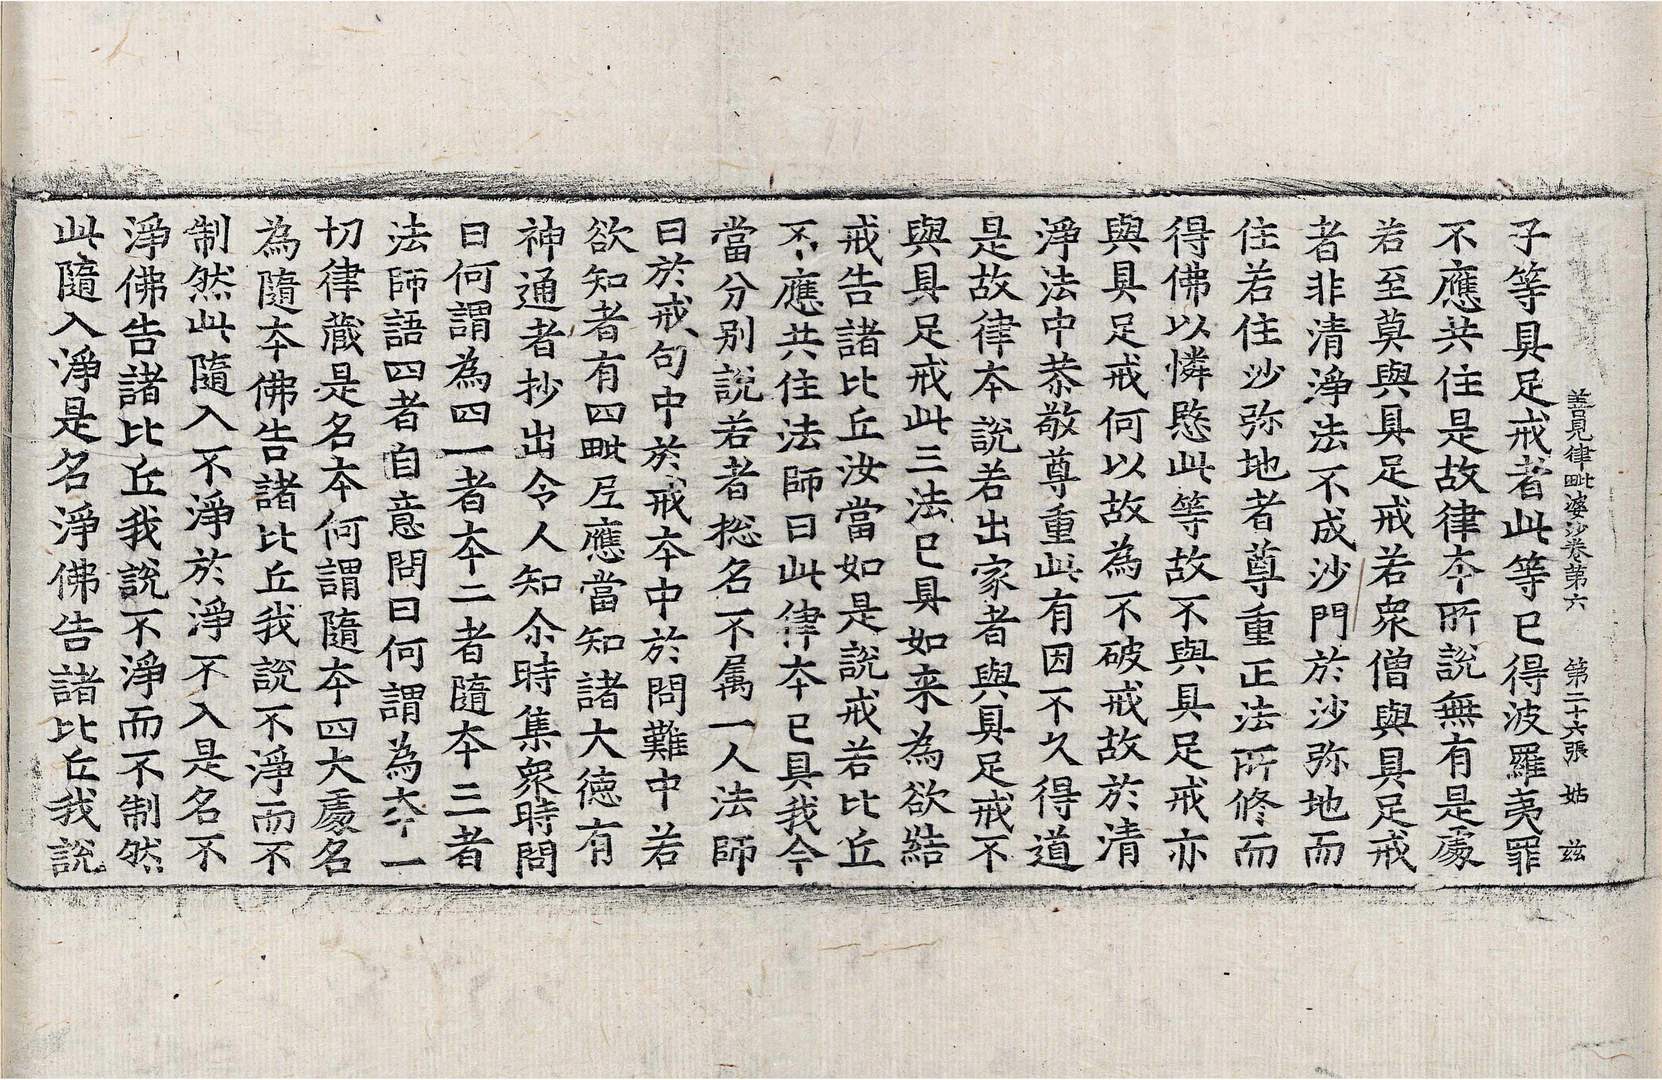 善見律毗婆沙卷第六 第二十六張 姑 兹
子等具足戒者此等已得波羅夷罪
不應共住是故律夲所說無有是處
若至莫與具足戒若衆僧與具足戒
者非清淨法不成沙門於沙弥地而
住若住沙弥地者尊重正法所修而
得佛以憐愍此等故不與具足戒亦
與具足戒何以故為不破戒故於清
淨法中恭敬尊重此有因不久得道
是故律夲說若出家者與具足戒不
與具足戒此三法已具如来為欲結
戒告諸比丘汝當如是說戒若比丘
不應共住法師曰此律夲已具我今
當分別說若者揔名不属一人法師
曰於戒句中於戒夲中於問難中若
欲知者有四毗尼應當知諸大德有
神通者抄出令人知尒時集衆時問
曰何謂為四一者夲二者隨夲三者
法師語四者自意問曰何謂為夲一
切律藏是名夲何謂隨夲四大處名
為隨夲佛告諸比丘我說不淨而不
制然此隨入不淨於淨不入是名不
淨佛告諸比丘我說不淨而不制然
此隨入淨是名淨佛告諸比丘我說